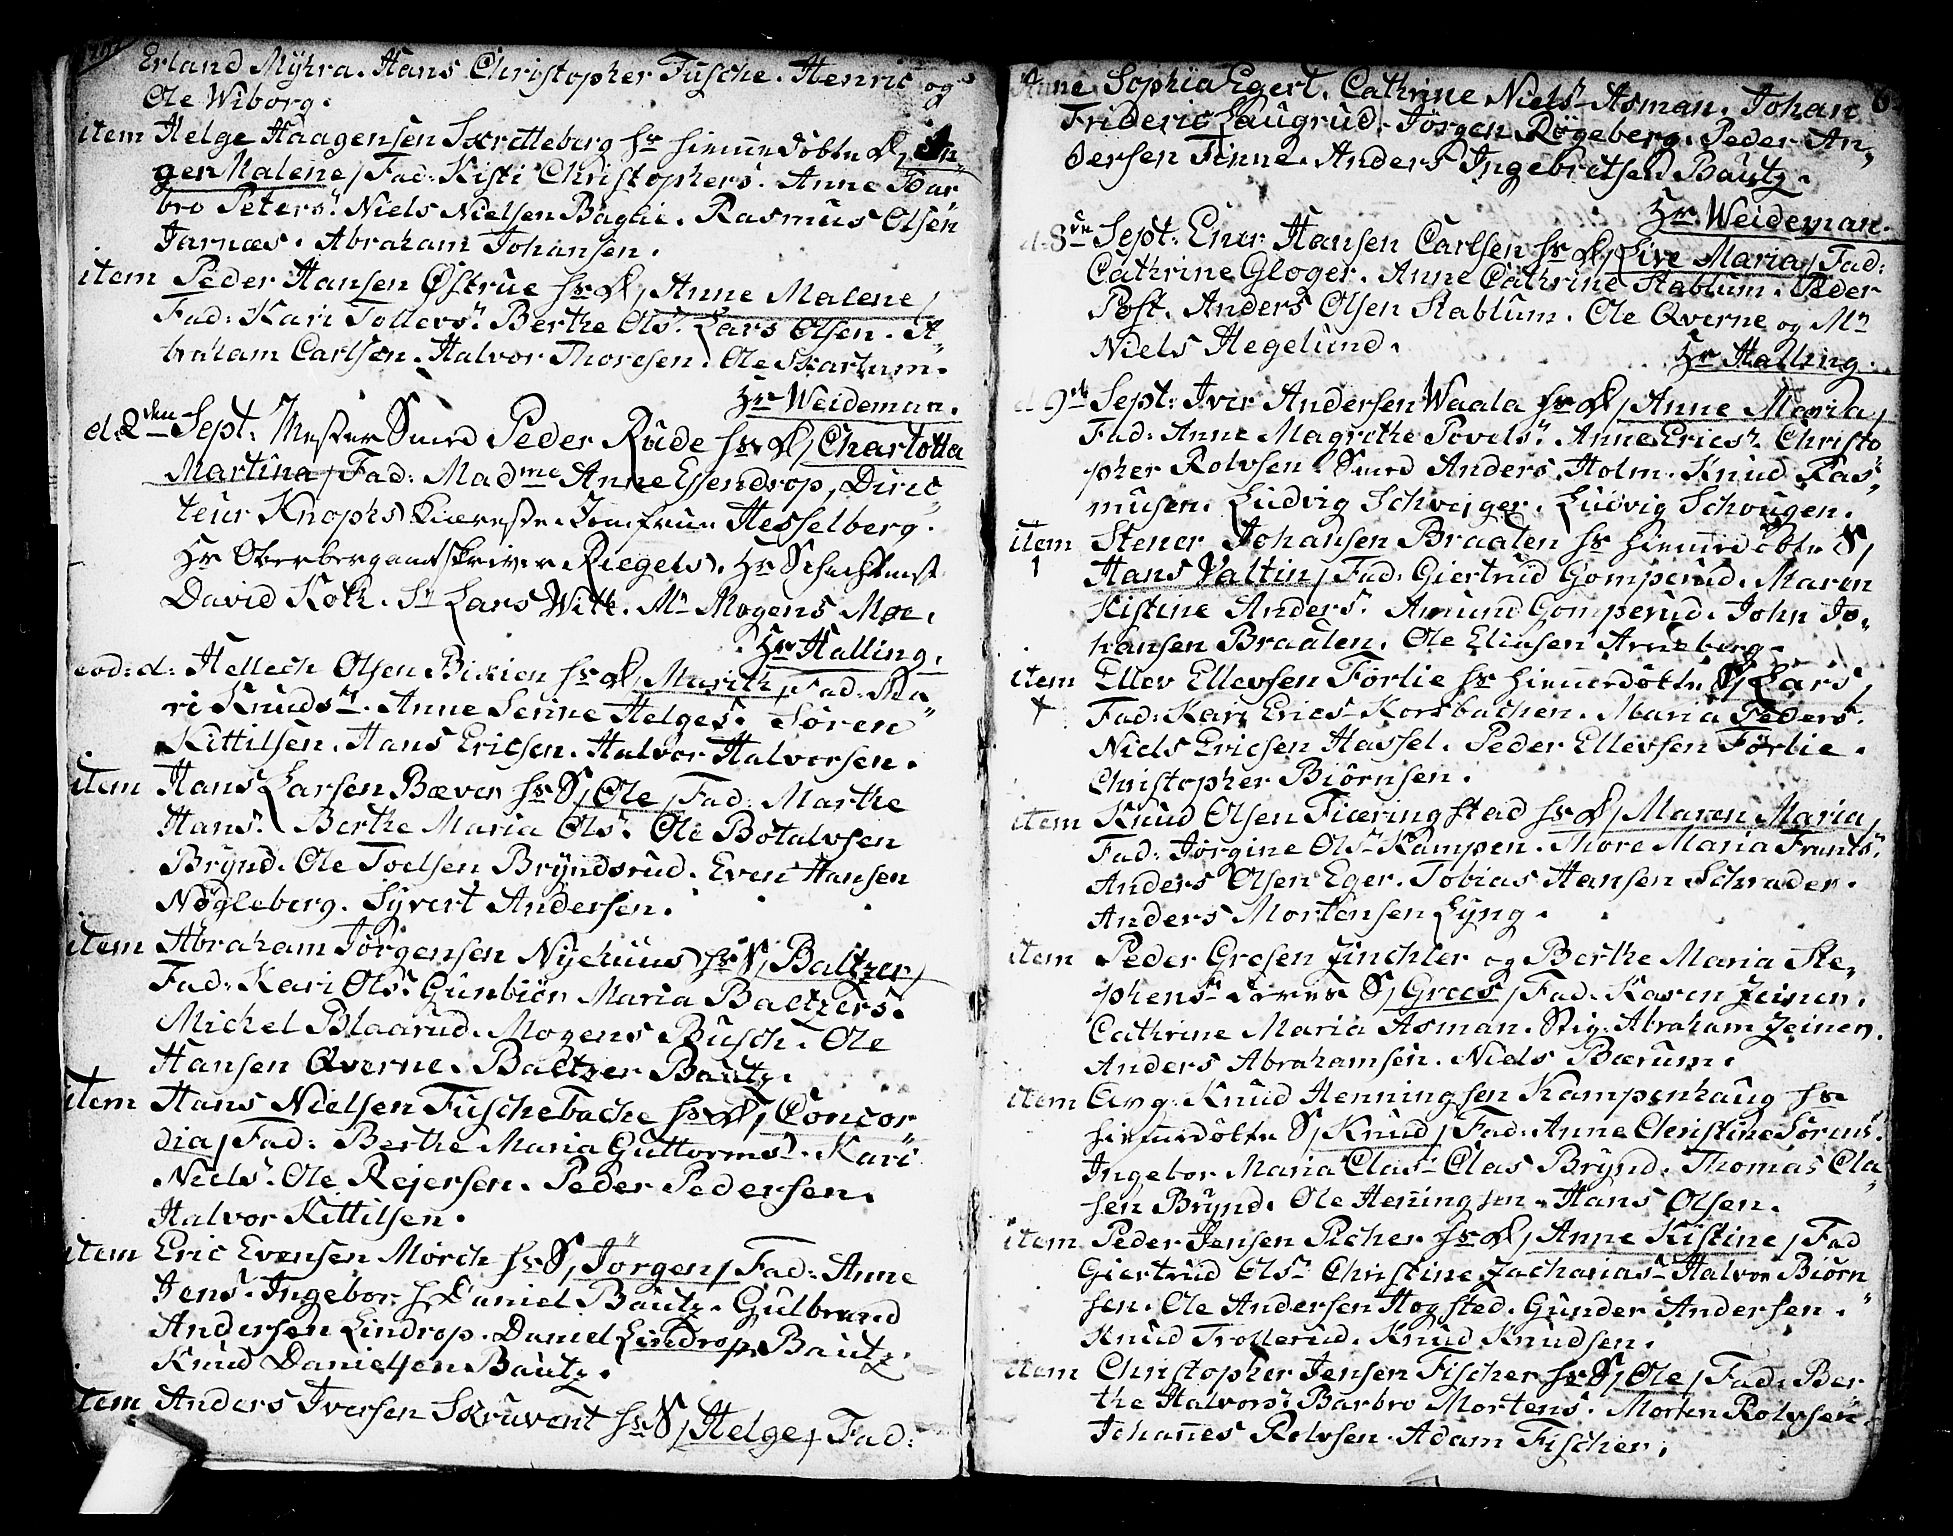 Erland Mÿhra. Hans Christopher Fusche. Henric og
Ole Wiborg.
item Helge Haagensen Skretteberg hr hiemedöbte D, In„
ger Malene, Fad: Kisti Christophers. Anne Bar
bro Peters. Niels Nielsen Baglie. Rasmus Olsen
Jarnæs. Abraham Johansen.
item Peder Hansen Østrue hr D, Anne Malene,
Fad: Kari Tollevs. Berthe Ols. Lars Olsen. A„
braham Carlsen. Halvor Thoresen. Ole Skartum.
Hr Weideman.
d. 2den Sept. Mester Smed Peder Rude hr D, Charlotta
Martina, Fad: Madme Anne Essendrop, Direc„
teur Knophs Kiereste. Jomfrue Hesselberg.
Hr Oberbergamtskriver Riegels. Hr Schichtmst
David Koth. Sr Lars Witt. Mr Mogens Moe.
Hr Halling.
eod: d: Hellech Olsen Bixien hr D, Marith, Fad: Ka„
ri Knudsn. Anne Senne Helges. Sören
Kittilsen. Hans Ericsen. Halvor Halvorsen.
item Hans Larsen Bæver hr S, Ole, Fad: Marthe
Hans. Berthe Maria Ols. Ole Botalvsen
Brÿnd. Ole Toelsen Brÿndsrud. Even Hansen
Nögleberg. Syvert Andersen.
item Abraham Jörgensen Nyehuus hr S, Baltzer,
Fad: Kari Ols. Gunbiör Maria Baltzers.
Michel Blaarud. Mogens Busch. Ole
Hansen Qverne. Baltzer Bautz.
item Hans Nielsen Fuschebache hr D, Concor
dia, Fad: Berthe Maria Guttorms. Kari
Niels. Ole Rejersen. Peder Pedersen.
Halvor Kittilsen.
item Eric Evensen Mörch hr S, Jörgen, Fad: Anne
Jens. Ingebor Daniel Bautz. Gulbrand
Andersen Lindrop. Daniel Lindrop Bautz.
Knud Danielsen Bautz.
item Anders Iversen Skruvent hr S, Helge, Fad:
Anne Sophia Egert. Cathrine Niels Asman. Johan
Frideric Laugrud. Jörgen Rögeberg. Peder An„
dersen Tinne. Anders Ingebretsen Bautz.
Hr Weideman.
d. 8de Sept: Ener Hansen Carlsen hr D, Live Maria, Fad:
Cathrine Gloger. Anne Cathrine Stablum. Peder
Post. Anders Olsen Stablum. Ole Qverne og Mr
Niels Hegelund.
Hr Halling.
d 9de Sept: Iver Andersen Waala hr D, Anne Maria,
Fad: Anne Magrethe Povels. Anne Erics. Christo
pher Rolvsen. Smed Anders Holm. Knud Ras„
musen. Ludvig Schveiger. Ludvig Schougen.
item Stener Johansen Braaten hr hiemedöbte S,
Hans Valtin, Fad: Giertrud Gomperud. Maren
Kistine Anders. Amund Gomperud. John Jo„
hansen Braaten. Ole Eliasen Arneberg.
item Ellev Ellevsen Förlie hr hiemedöbte S, Lars,
Fad: Kari Erics Korsbachen. Maria Peders.
Niels Ericsen Hassel. Peder Ellevsen Förlie.
Christopher Biörnsen.
item Knud Olsen Fiæringstad hr D, Maren Maria,
Fad: Jörgine Ols Kampen. Thore Maria Frants.
Anders Olsen Eger. Tobias Hansen Schrader.
Anders Mortensen Lyng.
item Peder Gresen Zinchler og Berthe Maria Ste„
phens S, Grees, Fad: Karen Zeiner.
Cathrine Maria Asman. Stig: Abraham Zeiner.
Anders Abrahamsen. Niels Bærum.
item Knud Henningsen Kampenhaug hr
hiemedöbte S, Knud, Fad: Anne Christine Sörens.
Ingebor Maria Clas. Clas Brÿnd. Thomas Cla„
sen Brÿnd. Ole Henningsen. Hans Olsen.
item Peder Jensen Picher hr D, Anne Kistine, Fad
Giertrud Ols. Christine Zacharias. Halvor Biörn
sen. Ole Andersen Hogsted. Gunder Andersen.
Knud Trollerud. Knud Knudsen.
item Christopher Jensen Fischer hr S, Ole, Fad: Ber
the Halvors. Barbro Mortens. Morten Rolvsen
Johannes Rolvsen. Adam Fischer.